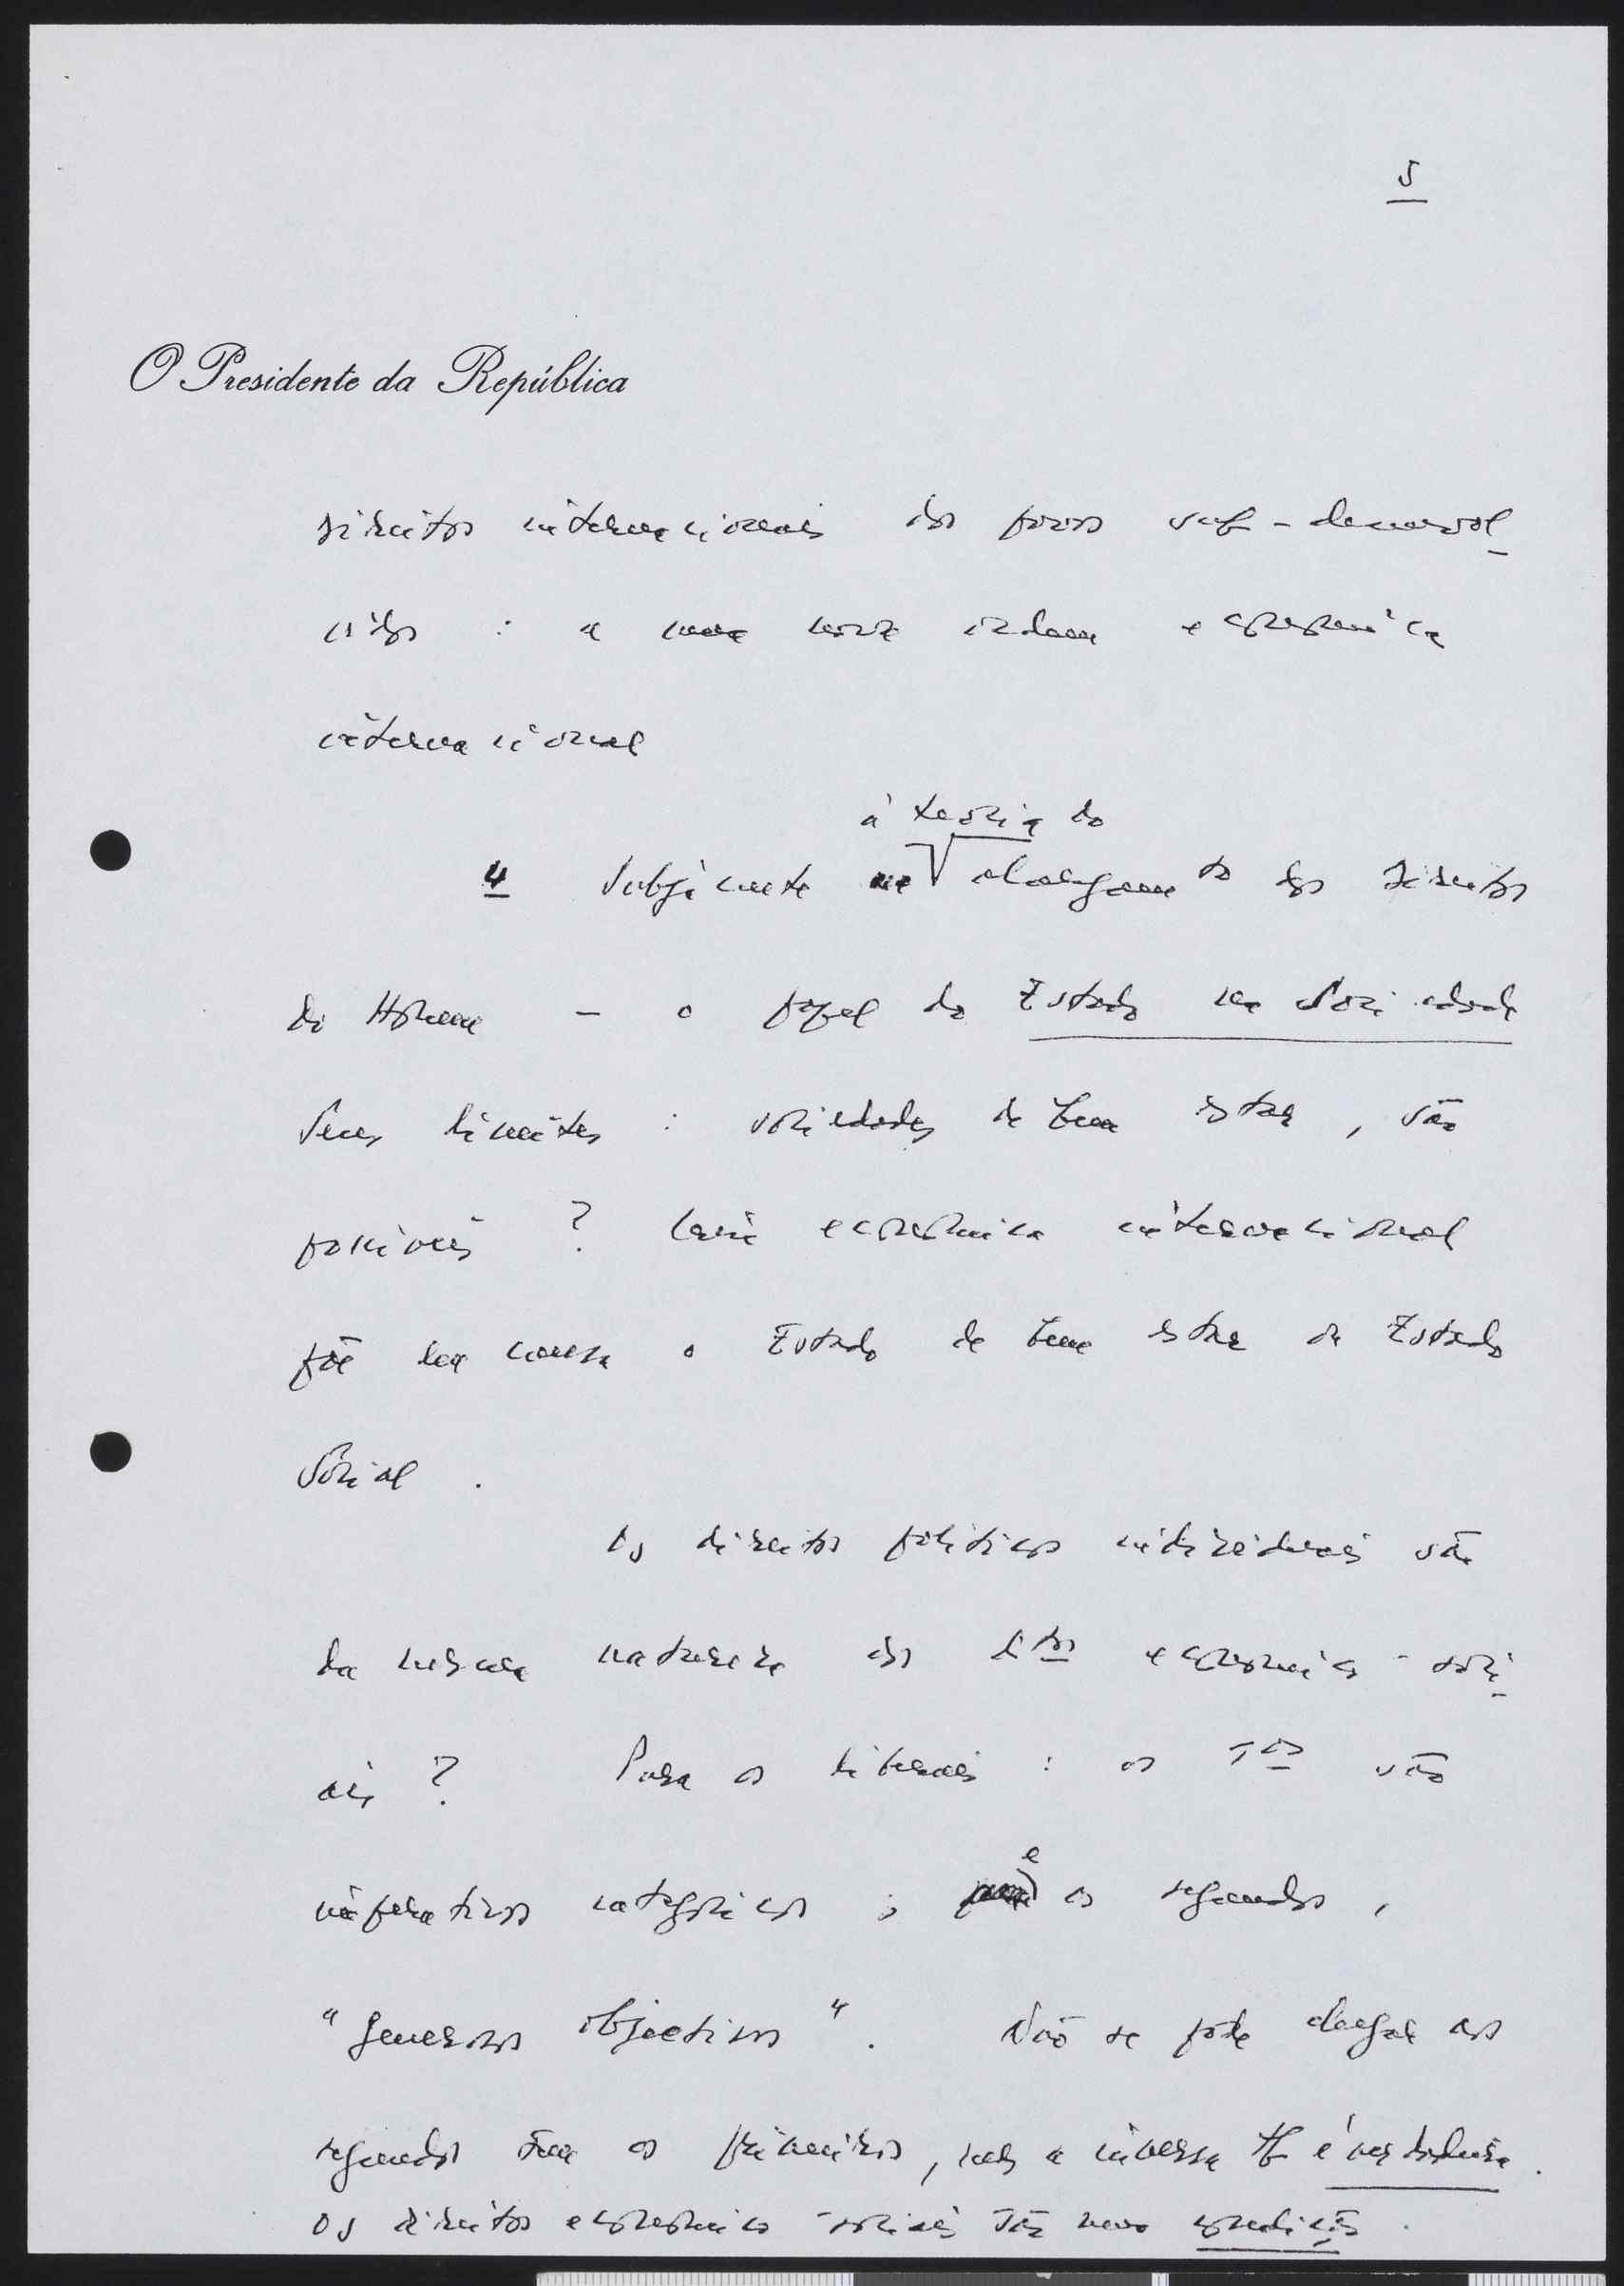 5
O Presidente da República
direitos internacionais dos povos sub-desenvol-
vidos : a uma nova ordem economica
internacional
à teoria do
4 Subjacente alargamto dos direitos
do Homem - o papel do Estado na Sociedade
Seus limites : sociedades de bem estar, são
possíveis ? Crise economica internacional
põe em causa o Estado de bem estar ou Estado
Social .
Os direitos politicos individuais são
da mesma natureza dos dtos economico-soci-
ais ? Para os liberais : os 1os são
imperativos categoricos ; e os segundos,
"generosos objectivos". Não se pode chegar aos
segundos sem os primeiros, mas a inversa tb é verdadeira.
Os direitos economico-sociais são uma condição.